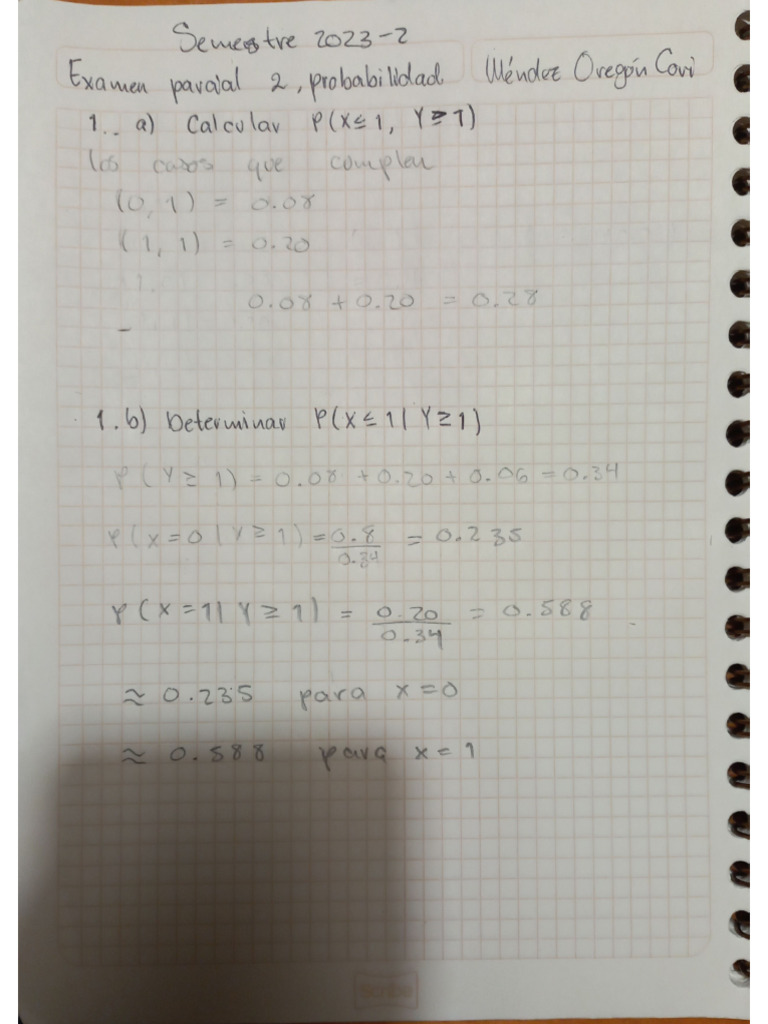 Semestre 2023-2
Examen parcial 2, probabilidad Méndez Oregón Covi
1.. a) Calcular P(X≤1, Y≥1)
los casos que complen
(0, 1) = 0.08
(1, 1) = 0.20
0.08 + 0.20 = 0.28
1. b) Determinar P(X≤1 | Y≥1)
P(Y≥1) = 0.08 + 0.20 + 0.06 = 0.34
P(X=0 | Y≥1) = 0.8/0.34 = 0.235
P(X=1 | Y≥1) = 0.20/0.34 = 0.588
≈ 0.235 para x=0
≈ 0.588 para x=1
Scribe